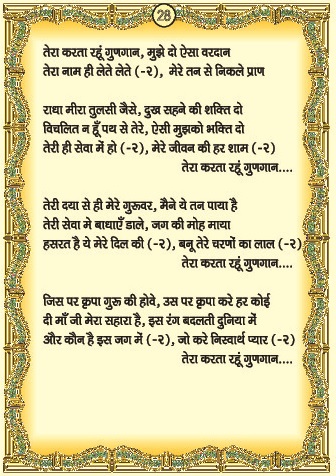 28
तेरा करता रहूं गुणगान, मुझे दो ऐसा वरदान
तेरा नाम ही लेते लेते (-२), मेरे तन से निकले प्राण
राधा मीरा तुलसी जैसे, दुख सहने की शक्ति दो
विचलित न हूँ पथ से तेरे, ऐसी मुझको भक्ति दो
तेरी ही सेवा में हो (-२), मेरे जीवन की हर शाम (-२)
तेरा करता रहूं गुणगान....
तेरी दया से ही मेरे गुरूवर, मैने ये तन पाया है
तेरी सेवा मे बाधाएँ डाले, जग की मोह माया
हसरत है ये मेरे दिल की (-२), बनू तेरे चरणों का लाल (-२)
तेरा करता रहूं गुणगान....
जिस पर कृपा गुरू की होवे, उस पर कृपा करे हर कोई
दी माँ जी मेरा सहारा है, इस रंग बदलती दुनिया में
और कौन है इस जग में (-२), जो करे निस्वार्थ प्यार (-२)
तेरा करता रहूं गुणगान....